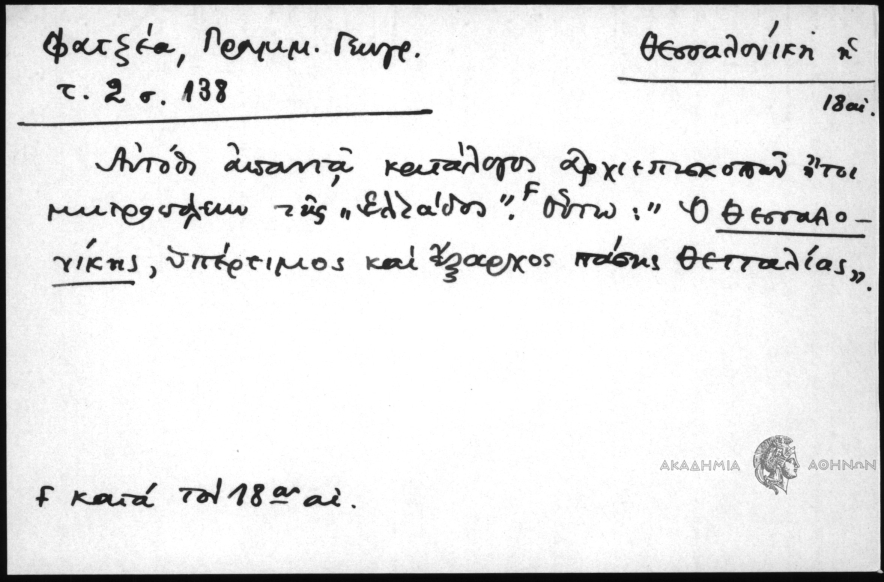 Φατζέα, Γραμμ. Γεωγρ.
τ. 2 σ. 138
Θεσσαλονίκη ἡ
18 αἰ.
Αὐτόθι ἀπαντᾷ κατάλογος ἀρχιεπισκοπῶν ἤτοι
μητροπόλεων τῆς „Ἑλλάδος”.ϝ Οὕτω : ” Ὁ Θεσσαλο–
νίκης, ὑπέρτιμος καὶ ἔξαρχος πάσης Θετταλίας”.
ΑΚΑΔΗΜΙΑ ΑΘΗΝΩΝ
ϝ κατὰ τὸν 18ον αἰ.